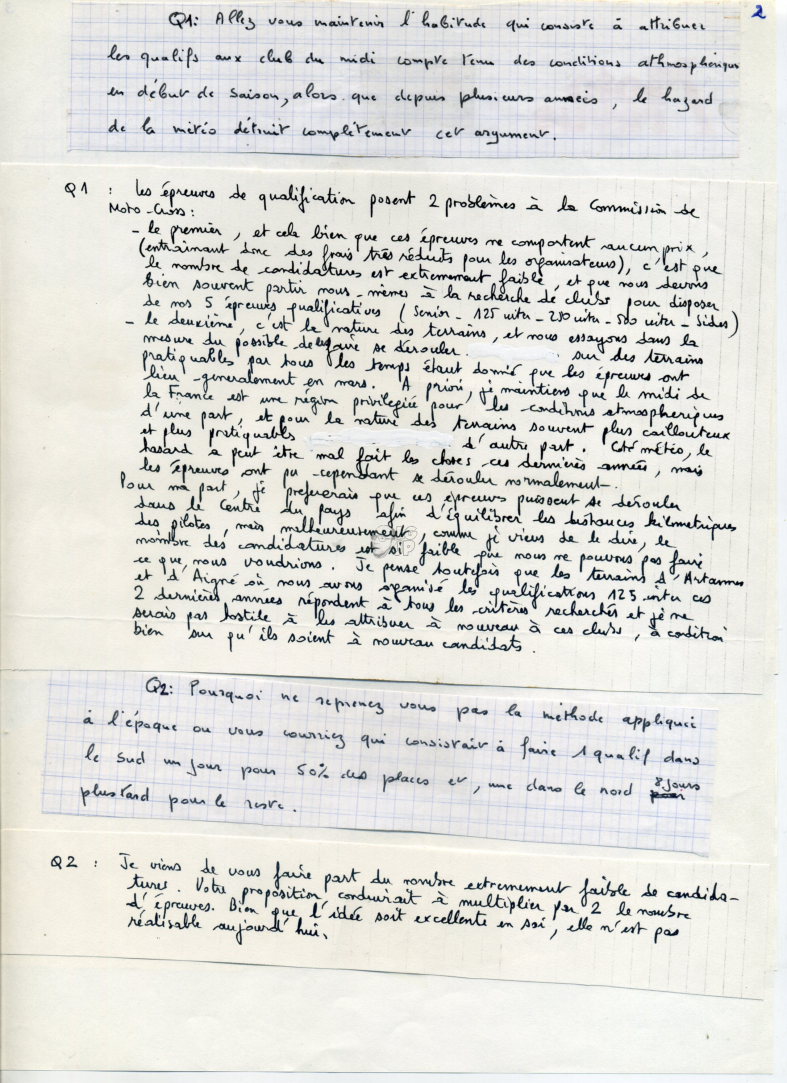 2
Q1: Allez vous maintenir l'habitude qui consiste à attribuer
les qualifs aux club du midi compte tenu des conditions athmosphériques
en début de saison, alors que depuis plusieurs années, le hazard
de la météo détruit complètement cet argument.
Q1 : Les épreuves de qualification posent 2 problèmes à la Commission de
Moto-Cross :
- le premier, et cela bien que ces épreuves ne comportent aucun prix,
(entraînant donc des frais très réduits pour les organisateurs), c'est que
le nombre de candidatures est extremement faible, et que nous devons
bien souvent partir nous-mêmes à la recherche de clubs pour disposer
de nos 5 épreuves qualificatives (Senior - 125 inter - 250 inter - 500 inter - Sides)
- le deuxième, c'est la nature des terrains, et nous essayons dans la
mesure du possible de les faire se dérouler sur des terrains
pratiquables par tous les temps étant donné que les épreuves ont
lieu généralement en mars. A priori, je maintiens que le midi de
la France est une région privilégiée pour les conditions atmospheriques
d'une part, et pour la nature des terrains souvent plus caillouteux
et plus pratiquables d'autre part. Côté météo, le
hasard a peut être mal fait les choses ces dernières années, mais
les épreuves ont pu cependant se dérouler normalement.
Pour ma part, je prefererais que ces épreuves puissent se dérouler
dans le Centre du pays afin d'équilibrer les distances kilometriques
des pilotes, mais malheureusement, comme je viens de le dire, le
nombre des candidatures est si faible que nous ne pouvons pas faire
ce que nous voudrions. Je pense toutefois que les terrains d'Artannes
et d'Aigné où nous avons organisé les qualifications 125 inter ces
2 dernières années répondent à tous les critères recherchés et je ne
serais pas hostile à les attribuer à nouveau à ces clubs, à condition
bien sur qu'ils soient à nouveau candidats.
Q2: Pourquoi ne reprenez vous pas la méthode appliquée
à l'époque ou vous couriez qui consistait à faire 1 qualif dans
le sud un jour pour 50% des places et, une dans le nord 8 jours
plus tard pour le reste.
Q2 : Je viens de vous faire part du nombre extremement faible de candida-
tures. Votre proposition conduirait à multiplier par 2 le nombre
d'épreuves. Bien que l'idée soit excellente en soi, elle n'est pas
réalisable aujourd'hui.